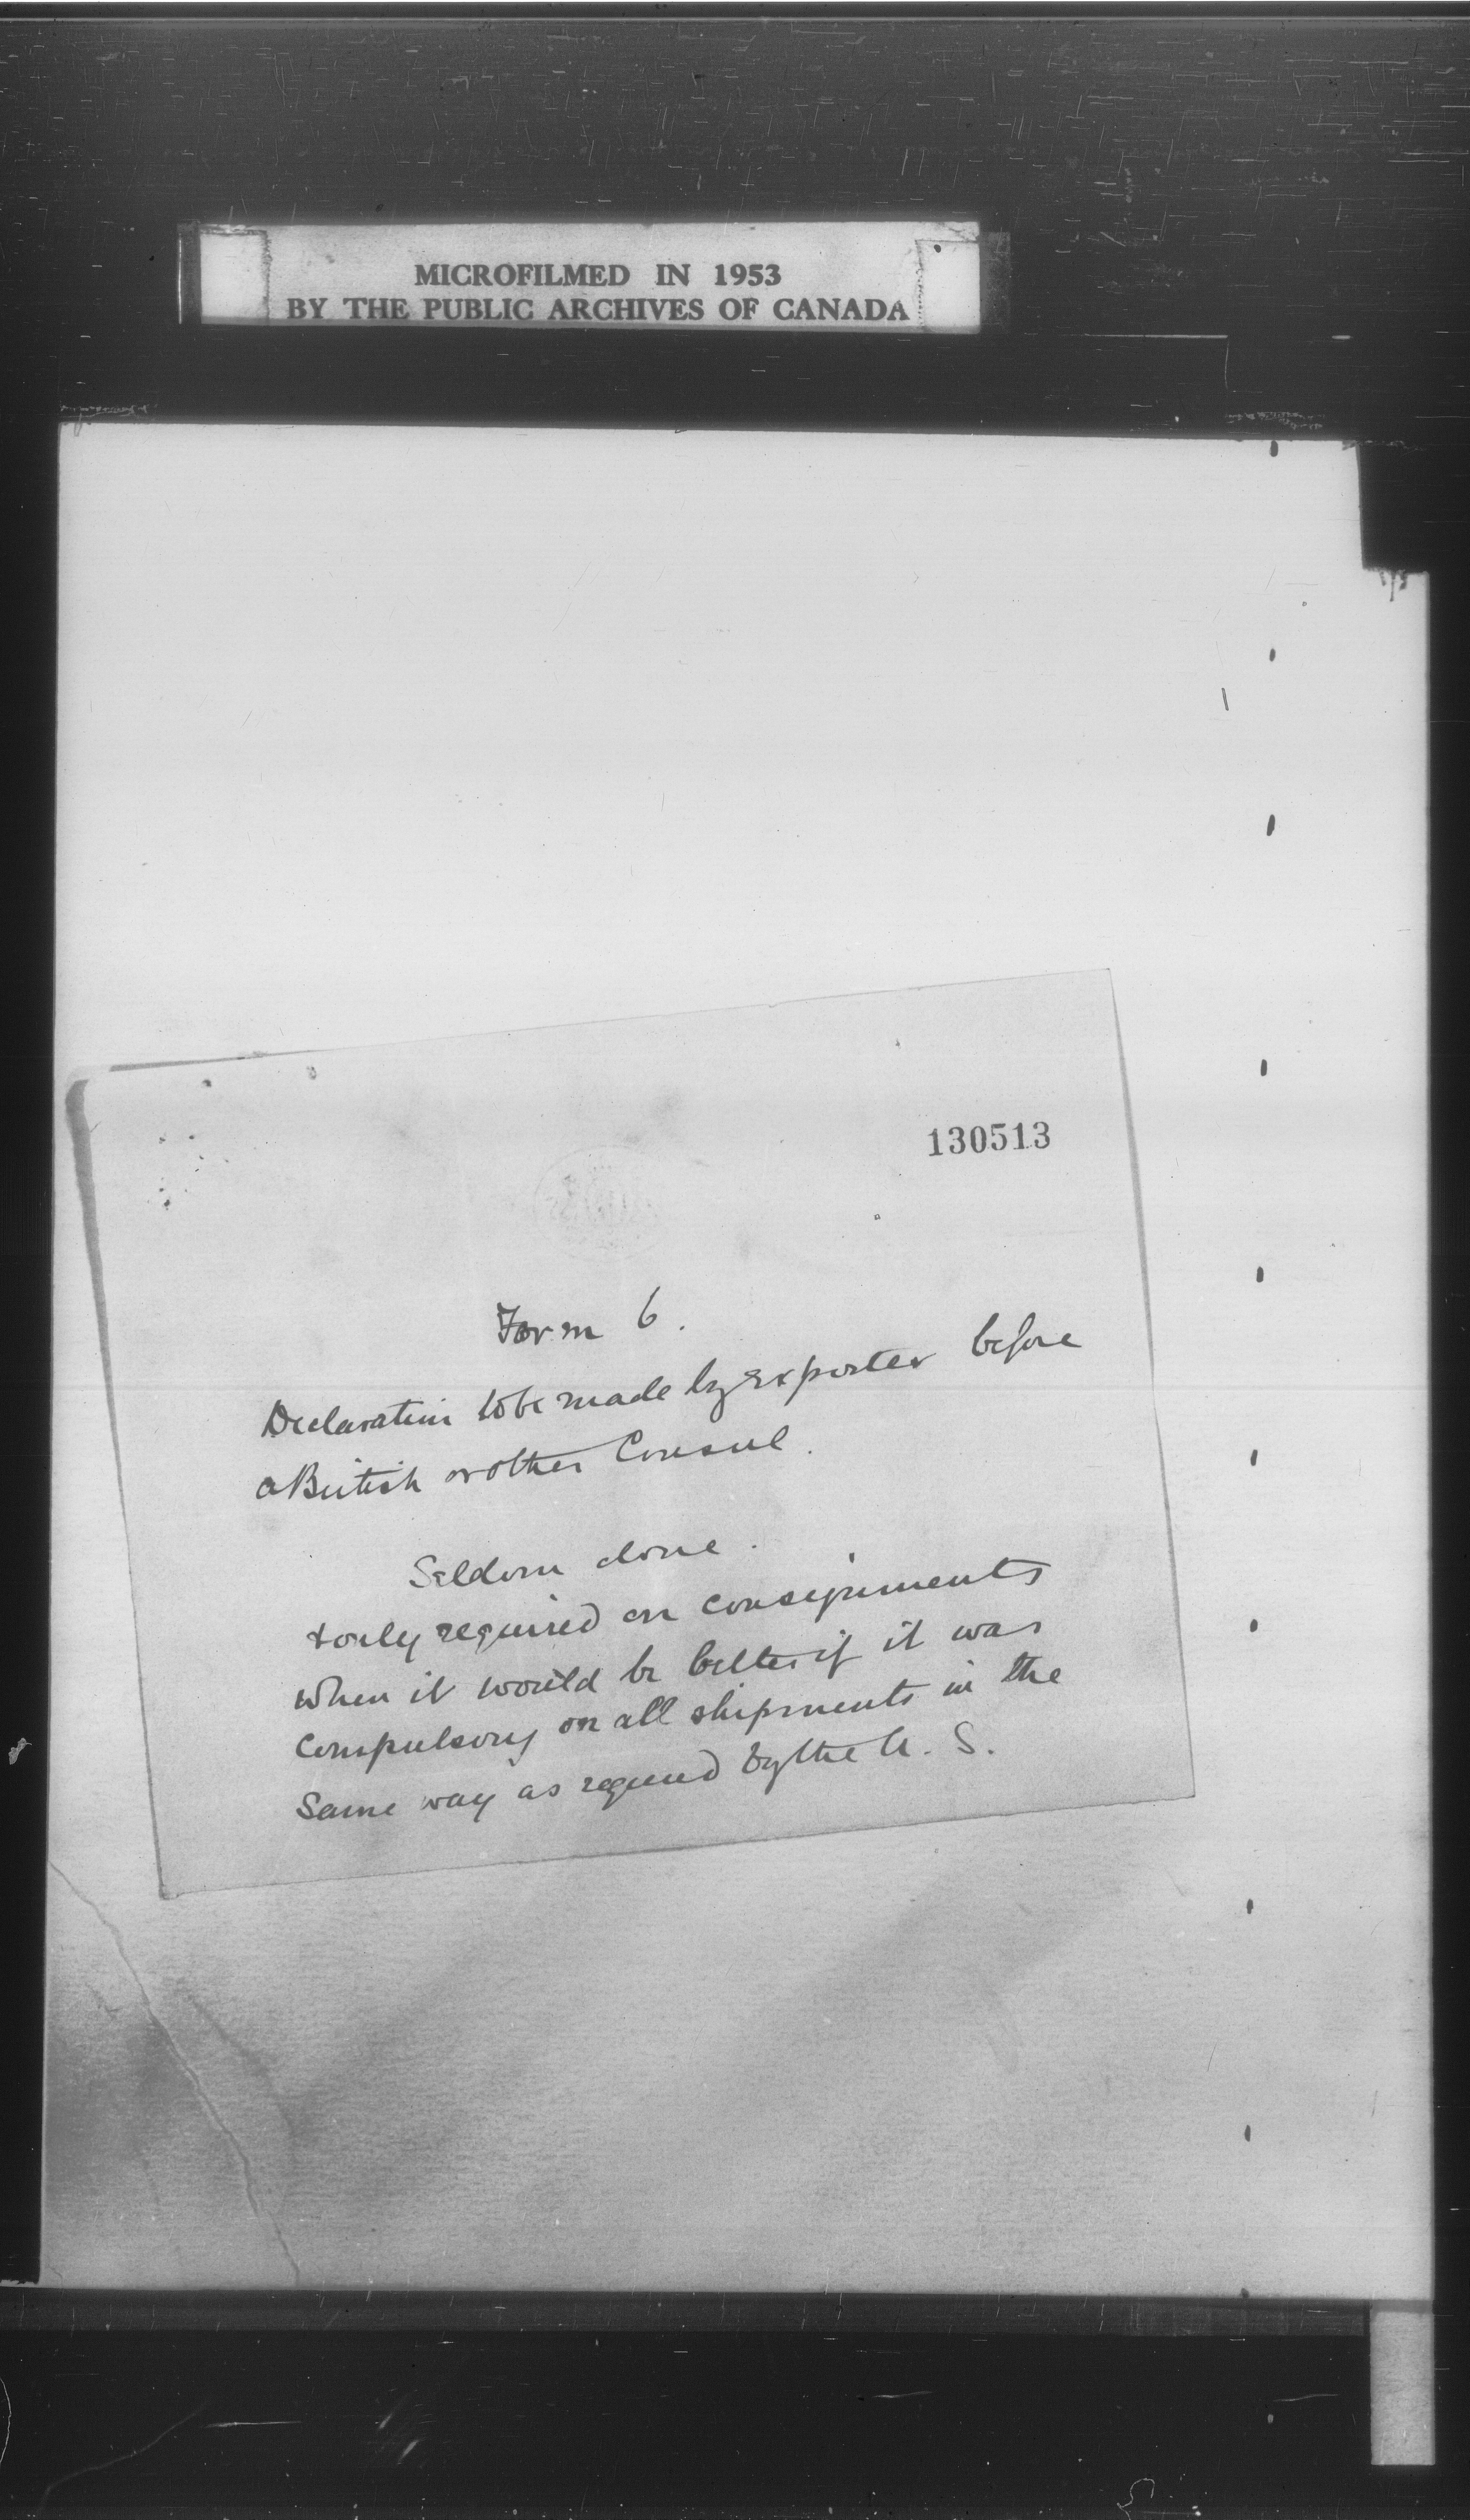 MICROFILMED IN 1953
BY THE PUBLIC ARCHIVES OF CANADA
130513
Form 6.
Declaration to be made by exporter before
a British or other Consul.
Seldom done.
& only required on consignments
when it would be better if it was
compulsory on all shipments in the
Same way as required by the U. S.